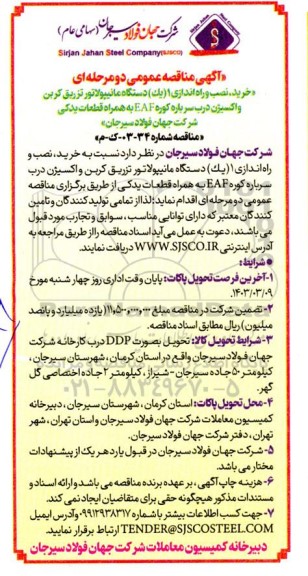 شرکت جهان فولاد سیرجان (سهامی عام)
Sirjan Jahan Steel Company(SJSCO)
«آگهی مناقصه عمومی دو مرحله ای
«خرید، نصب و راه اندازی ۱ (یک) دستگاه مانیپولاتور تزریق کربن
واکسیژن درب سرباره کوره EAF به همراه قطعات یدکی
شرکت جهان فولاد سیرجان»
«مناقصه شماره ۳۴-۰۳-ک-م»
شرکت جهان فولاد سیرجان در نظر دارد نسبت به خرید، نصب و
راه اندازی ۱ (یک) دستگاه مانیپولاتور تزریق کربن و اکسیژن درب
سرباره کوره EAF به همراه قطعات یدکی از طریق برگزاری مناقصه
عمومی دو مرحله ای اقدام نماید؛ لذا از تمامی تولید کنندگان و تامین
کنندگان معتبر که دارای توانایی مناسب، سوابق و تجارب مورد قبول
می باشند، دعوت به عمل می آید اسناد مناقصه را از طریق مراجعه به
آدرس اینترنتی WWW.SJSCO.IR دریافت نمایند.
● شرایط:
۱- آخرین فرصت تحویل پاکات: پایان وقت اداری روز چهار شنبه مورخ
۱۴۰۳/۰۳/۰۹.
۲- تضمین شرکت در مناقصه مبلغ ۱۱,۵۰۰,۰۰۰,۰۰۰ (یازده میلیارد و پانصد
میلیون) ریال مطابق اسناد مناقصه.
۳- شرایط تحویل کالا: تحویل بصورت DDP درب کارخانه شرکت
جهان فولاد سیرجان واقع در استان کرمان، شهرستان سیرجان،
کیلومتر ۵۰ جاده سیرجان - شیراز، کیلومتر ۲ جاده اختصاصی گل
گهر.
۴- محل تحویل پاکات: استان کرمان، شهرستان سیرجان، دبیرخانه
کمیسیون معاملات شرکت جهان فولاد سیرجان و استان تهران، شهر
تهران، دفتر شرکت جهان فولاد سیرجان.
۵- شرکت جهان فولاد سیرجان در قبول یا رد هر یک از پیشنهادات
مختار می باشد.
۶- هزینه چاپ آگهی، بر عهده برنده مناقصه می باشد و ارائه اسناد و
مستندات مذکور هیچگونه حقی برای متقاضیان ایجاد نمی کند.
۷- جهت کسب اطلاعات بیشتر با شماره ۰۹۹۱۲۹۳۸۳۱۷ و آدرس ایمیل
TENDER@SJSCOSTEEL.COM ارتباط برقرار نمایید.
دبیرخانه کمیسیون معاملات شرکت جهان فولاد سیرجان
۰۲۱-۸۸۳۴۹۶۷۰-۵